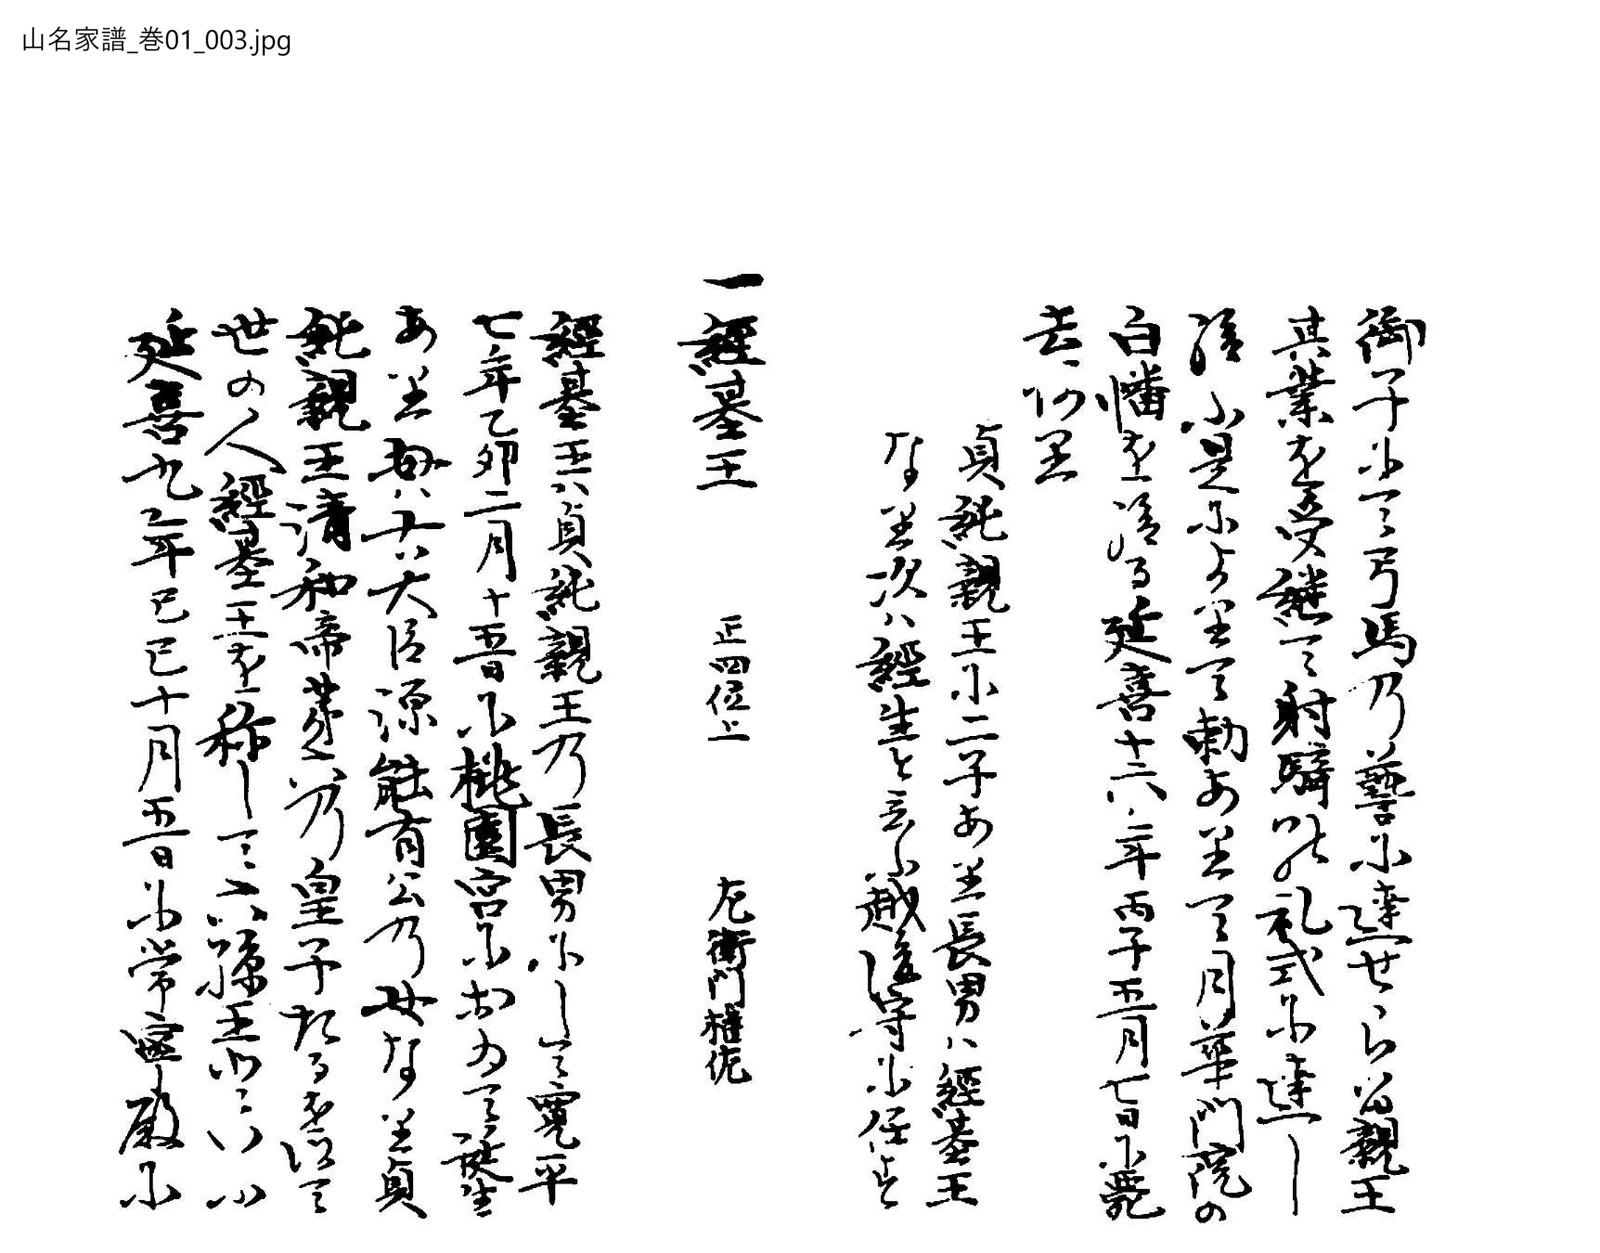 山名家譜_巻01_003.jpg
御子にて弓馬乃藝に達せらる親王
其業を受継て射騎の礼式に達し
給ふ是によりて勅ありて月華門院の
白幡を給る延喜十六年丙子五月七日に薨
去し給り
貞純親王に二子あり長男ハ經基王
なり次ハ經生と云ふ越後守に任す
一經基王 正四位上 左衛門権佐
經基王ハ貞純親王乃長男にして寛平
七年乙卯二月十五日に桃園宮において誕生
あり母ハ右大臣源能有公乃女なり貞
純親王清和帝第六乃皇子たるを以て
世の人經基王を称して六孫王といふ
延喜九年己巳十月五日に常寧殿に